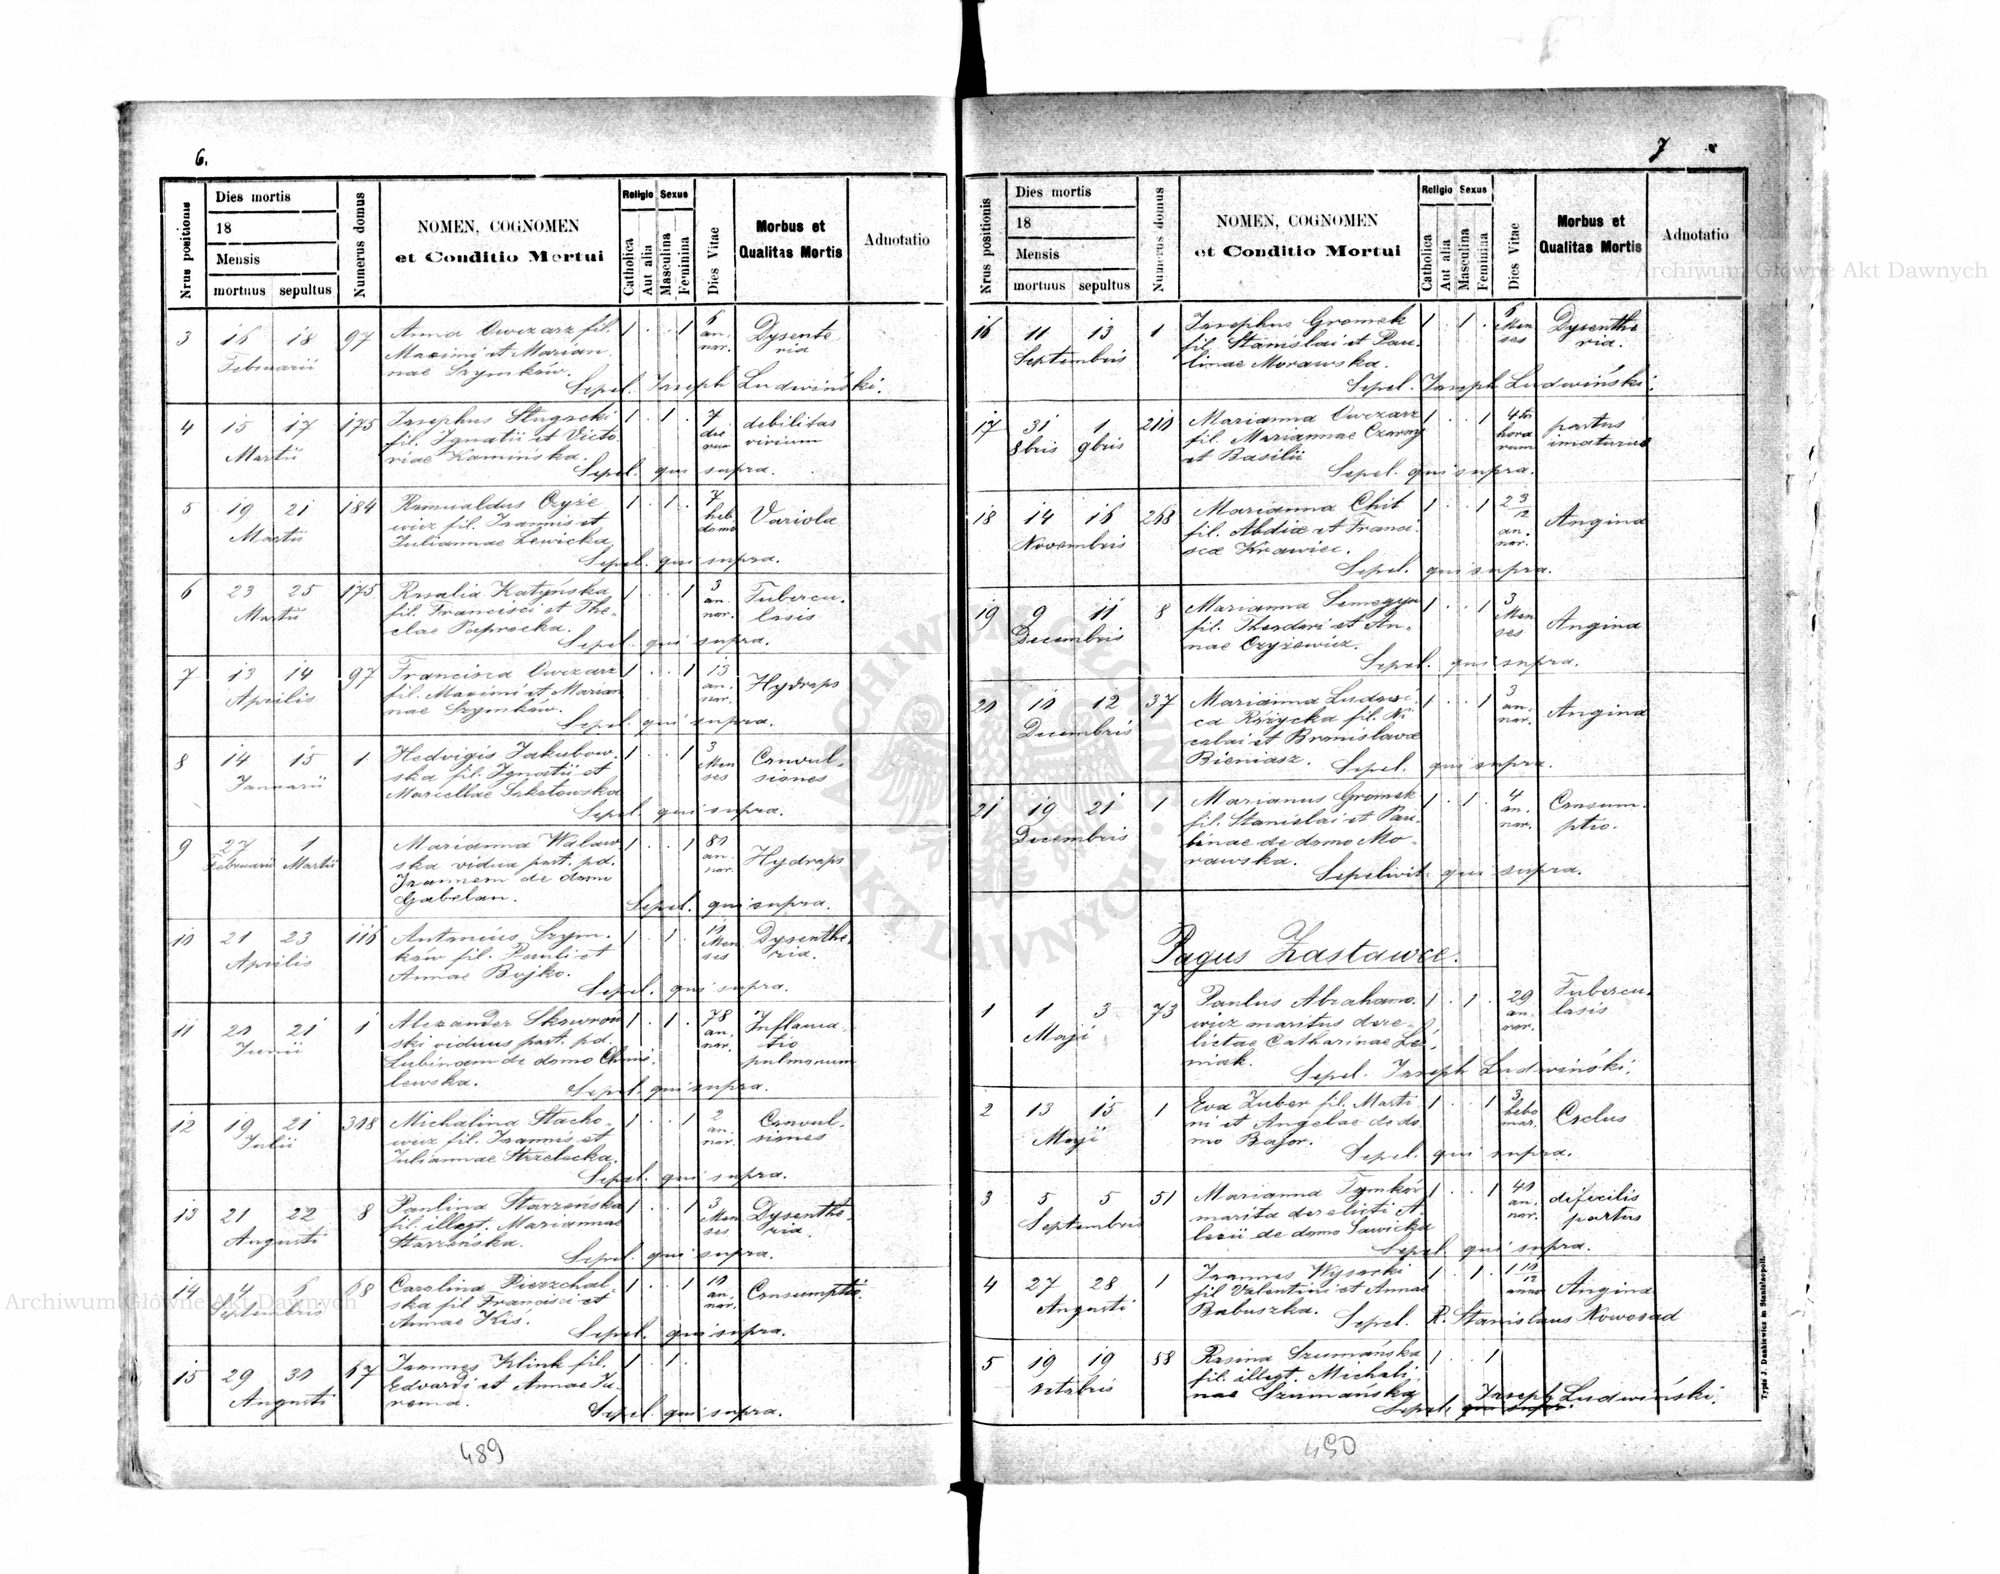 6.
Nrus positionis
Dies mortis
18
Mensis
mortuus sepultus
Numerus domus
NOMEN, COGNOMEN
et Conditio Mortui
Religio Sexus
Catholica
Aut alia
Masculina
Feminina
Dies Vitae
Morbus et
Qualitas Mortis
Adnotatio
3 16 18 97 Anna Owczarz fil. 1 . . 1 6 Dysente
Februarii Maximi et Marian an. ria
nae Szymków. nor.
Sepel. Joseph Ludwiński.
4 15 17 175 Josephus Sługocki 1 . 1 . 7 debilitas
Martii fil. Ignatii et Victo die virium
riae Kamińska. rum
Sepel. qui supra.
5 19 21 184 Romualdus Czyże 1 . 1 . 7 Variola
Martii wicz fil. Joannis et heb
Juliannae Lewicka domo
Sepel. qui supra.
6 23 25 175 Rosalia Katyńska 1 . . 1 3 Tubercu.
Martii fil. Francisci et The- an. losis
clae Paprocka. nor.
Sepel. qui supra.
7 13 14 97 Francisca Owczarz 1 . . 1 13 Hydrops
Aprilis fil. Maximi et Marian an.
nae Szymków. nor.
Sepel. qui supra.
8 14 15 1 Hedvigis Jakubow. 1 . . 1 3 Convul-
Januarii ska fil. Ignatii et Men siones
Mariellae Sokołowska ses
Sepel. qui supra.
9 27 1 Marianna Walaw 1 . . 1 80 Hydrops
Februarii Martii ska vidua post. pd. an.
Joannem de domo nor.
Gabelan.
Sepel. qui supra.
10 21 23 116 Antonius Szym- 1 . 1 . 10 Dysenthe.
Aprilis ków fil. Pauli et Men ria.
Annae Bojko. ses
Sepel. qui supra.
11 20 21 1 Alexander Skowroń 1 . 1 . 78 Inflama-
Junii ski viduus post. pd. an. tio
Lubinam de domo Chmie nor. pulmonum
lewska.
Sepel. qui supra.
12 19 21 308 Michalina Stacho- 1 . . 1 2 Convul-
Julii wicz fil. Joannis et an. siones
Juliannae Strzelecka. nor.
Sepel. qui supra.
13 21 22 8 Paulina Starzeńska 1 . . 1 3 Dysenthe.
Augusti fil. illegt. Mariannae Men ria.
Starzeńska. ses
Sepel. qui supra.
14 4 6 68 Carolina Pierzchal 1 . . 1 10 Consumptio.
Septembris ska fil Francisci et an.
Annae Kis. nor.
Sepel. qui supra.
15 29 30 67 Joannes Klink fil. 1 . 1 .
Augusti Edvardi et Annae Ju-
rema.
Sepel. qui supra.
489
7
Nrus positionis
Dies mortis
18
Mensis
mortuus sepultus
Numerus domus
NOMEN, COGNOMEN
et Conditio Mortui
Religio Sexus
Catholica
Aut alia
Masculina
Feminina
Dies Vitae
Morbus et
Qualitas Mortis
Adnotatio
16 11 13 1 Josephus Gromek 1 . 1 . 6 Dysenthe
Septembris fil. Stanislai et Pau- Men ria.
linae Morawska. ses
Sepel. Joseph Ludwiński.
17 31 1 210 Marianna Owczarz 1 . . 1 partus
8bris 9bris fil. Mariannae Czarny hora imaturus
et Basilii rum
Sepel. qui supra.
18 14 16 268 Marianna Chit 1 . . 1 2 3/12 Angina
Novembris fil. Abdiae et Franci- an.
scae Krawiec. nor.
Sepel. qui supra.
19 9 11 8 Marianna 1 . . 1 3 Angina
Decembris fil. Theodori et An- Men
nae Czyżewicz. ses
Sepel. qui supra.
20 10 12 37 Marianna Ludovi- 1 . . 1 3 Angina
Decembris ca Różycka fil. Ni an.
colai et Bronislavae nor.
Bieniasz. Sepel. qui supra.
21 19 21 1 Marianus Gromek 1 . 1 . 4 Consum-
Decembris fil. Stanislai et Pau- an. ptio.
linae de domo Mo- nor.
rawska.
Sepelivit qui supra.
Pagus Zastawce.
1 1 3 73 Paulus Abrahamo 1 . 1 . 29 Tubercu.
Maji wicz maritus dere- an. losis
lictae Catharinae Leś, nor.
niak. Sepel. Joseph Ludwiński.
2 13 15 1 Eva Zuber fil. Marti 1 . . 1 3 Coclus
Maji ni et Angelae de do hebo
mo Bajor. mar.
Sepel. qui supra.
3 5 5 51 Marianna Tymków 1 . . 1 40 dificilis
Septembris marita derelicti A- an. partus
lexii de domo Sawicka nor.
Sepel. qui supra.
4 27 28 1 Joannes Wysocki 1 . 1 . 1 10/12 Angina
Augusti fil Valentini et Annae anno
Babuszka. Sepel. R. Stanislaus Nowosad
5 19 19 58 Rosina Szumańska 1 . . 1
Octobris fil. illegt. Michali-
nae Szumańska Joseph Ludwiński.
Sepel. qui supr.
450
Typis J. Dankiewicz in Stanislaopoli.
Archiwum Główne Akt Dawnych
Archiwum Główne Akt Dawnych
ARCHIWUM GŁÓWNE AKT DAWNYCH